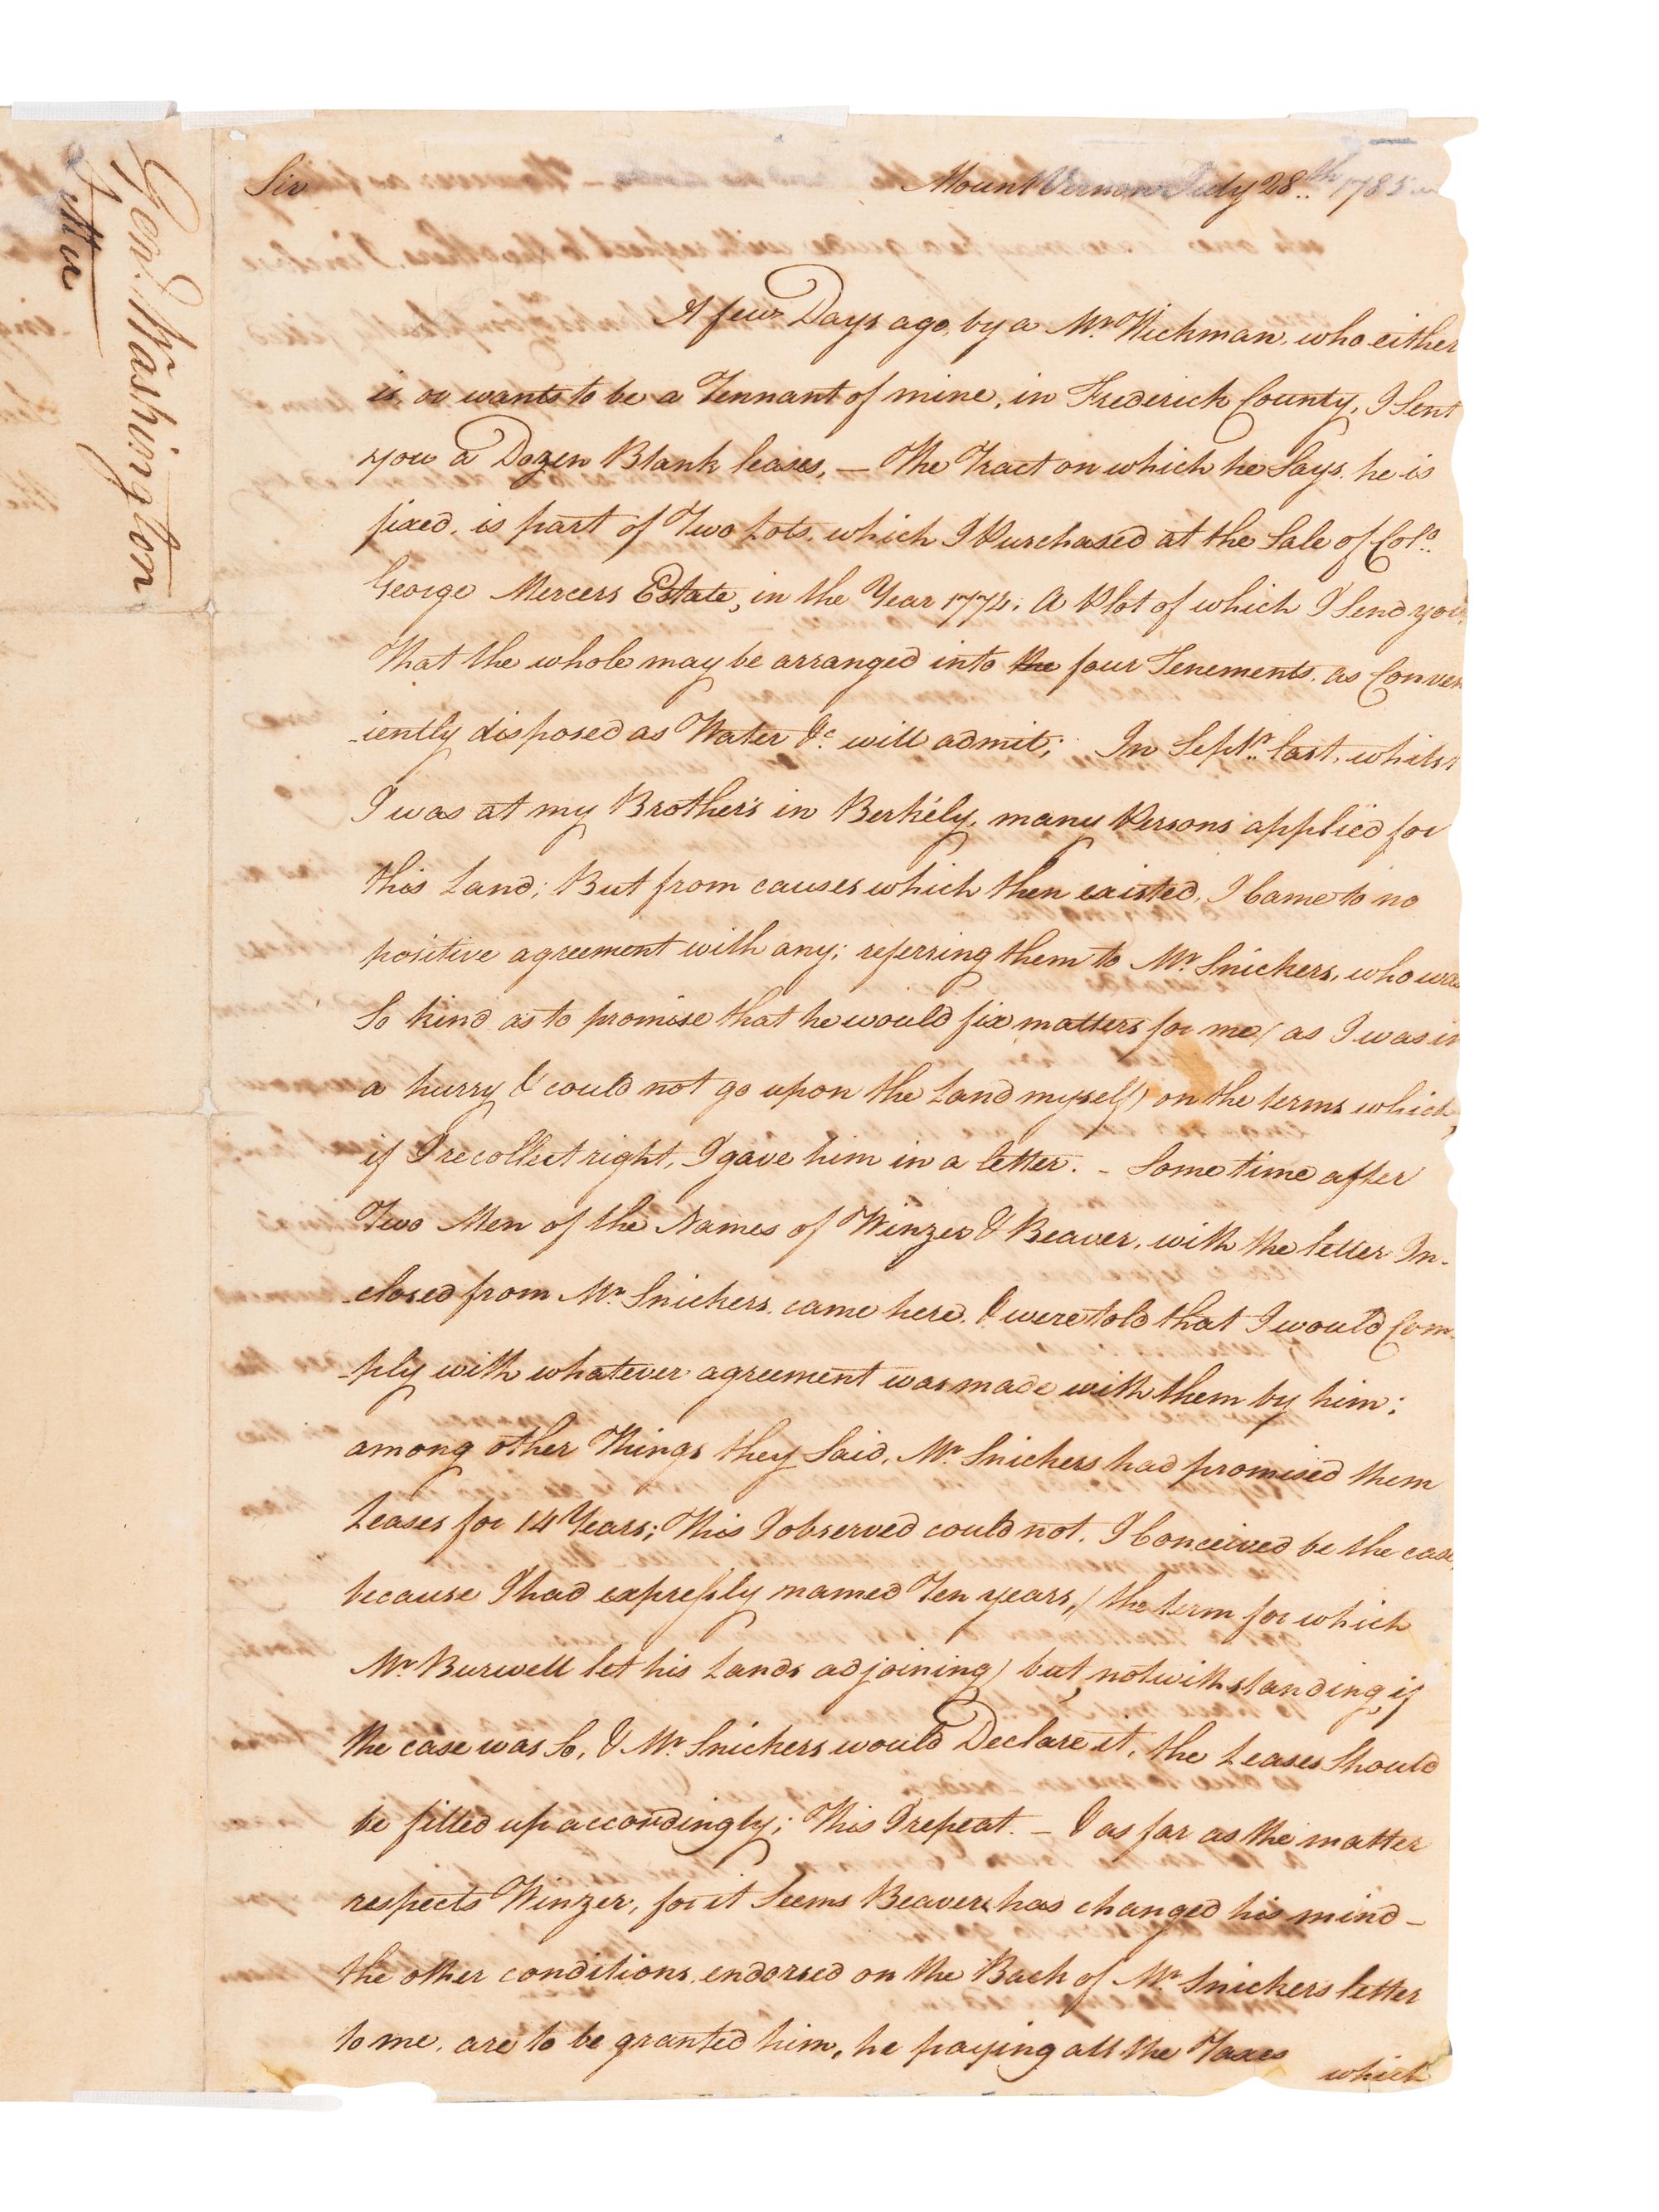 Genl. Washington
Letter
Sir
Mount Vernon July 28th 1785
A few Days ago, by a Mr. Wickman, who either
is, or wants to be a Tennant of mine, in Frederick County, I Sent
you a Dozen Blank leases, — The Tract on which he Says he is
fixed, is part of Two Lots, which I Purchased at the Sale of Colo.
George Mercers Estate, in the Year 1774. A Plot of which I Send you,
That the whole may be arranged into the four Tenements, as Conven
-iently disposed as Water &c. will admit; In Septr. last, whilst
I was at my Brother's in Berkely, many Persons applied for
this Land; But from causes which then existed, I Came to no
positive agreement with any; referring them to Mr. Snickers, who was
So kind as to promise that he would fix matters for me (as I was in
a hurry & could not go upon the Land myself) on the terms which,
if I recollect right, I gave him in a letter. - Some time after
Two Men of the Names of Winzer & Beaver, with the letter In-
-closed from Mr. Snickers, came here, & were told that I would Com-
-ply with whatever agreement was made with them by him;
among other Things they Said, Mr. Snickers had promised them
Leases for 14 Years; This I observed could not, I Conceived be the case,
because I had expressly named Ten years, (the term for which
Mr. Burwell let his Lands adjoining) but, notwithstanding, if
the case was So, & Mr. Snickers would Declare it, the Leases Should
be filled up accordingly; This I repeat. — & as far as the matter
respects Winzer, for it Seems Beaver has changed his mind —
the other conditions, endorsed on the Back of Mr. Snickers letter
to me, are to be granted him, he paying all the Taxes
which